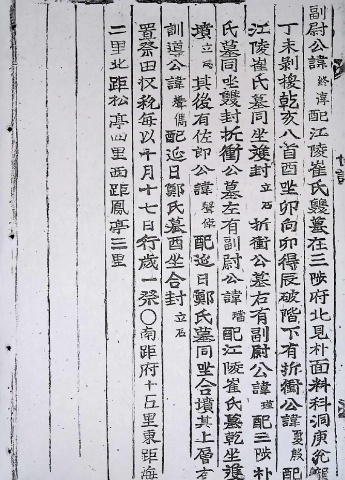 副尉公諱終淳配江陵崔氏雙墓在三陟府北見朴面料科洞庚兌龍
丁未剝換乾亥八首酉坐卯向卯得辰破階下有折衝公諱夏殷配
江陵崔氏墓同坐雙封立石折衝公墓右有副尉公諱瑾配三陟朴
氏墓同坐雙封折衝公墓左有副尉公諱 配江陵崔氏墓乾坐雙
墳立石其後有佐郎公諱聲俊配延日鄭氏墓同坐合墳其上層右
訓導公諱聲儁配延日鄭氏墓酉坐合封立石
置祭田收稅每以十月十七日行歲一祭〇南距府十五里東距海
二里北距松亭四里西距鳳亭三里